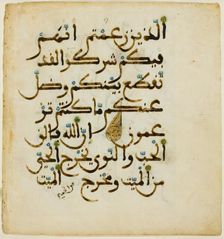 الذين زعمتم انهم
فيكم شركوا لقد
تقطع بينكم وضل
عنكم ما كنتم تز
عمون ان الله فالق
الحب والنوى يخرج الحي
من الميت ومخرج الميت